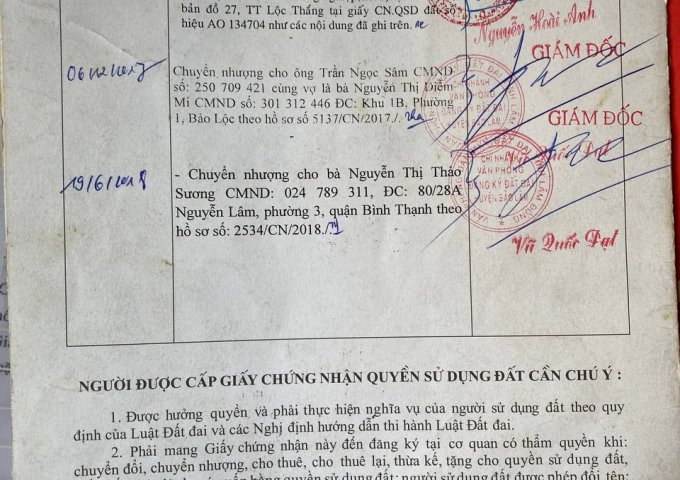 bản đồ 27, TT Lộc Thắng tại giấy CN.QSD đất số
hiệu AO 134704 như các nội dung đã ghi trên.
Nguyễn Hoài Anh
06/12/2017
Chuyển nhượng cho ông Trần Ngọc Sâm CMND
số: 250 709 421 cùng vợ là bà Nguyễn Thị Diễm
Mi CMND số: 301 312 446 ĐC: Khu 1B, Phường
1, Bảo Lộc theo hồ sơ số 5137/CN/2017./.
GIÁM ĐỐC
CHI NHÁNH
VĂN PHÒNG
ĐĂNG KÝ ĐẤT ĐAI
HUYỆN BẢO LÂM
Vũ Quốc Đạt
19/6/2018
- Chuyển nhượng cho bà Nguyễn Thị Thảo
Sương CMND: 024 789 311, ĐC: 80/28A
Nguyễn Lâm, phường 3, quận Bình Thạnh theo
hồ sơ số: 2534/CN/2018./
GIÁM ĐỐC
CHI NHÁNH
VĂN PHÒNG
ĐĂNG KÝ ĐẤT ĐAI
HUYỆN BẢO LÂM
Vũ Quốc Đạt
NGƯỜI ĐƯỢC CẤP GIẤY CHỨNG NHẬN QUYỀN SỬ DỤNG ĐẤT CẦN CHÚ Ý :
1. Được hưởng quyền và phải thực hiện nghĩa vụ của người sử dụng đất theo quy
định của Luật Đất đai và các Nghị định hướng dẫn thi hành Luật Đất đai.
2. Phải mang Giấy chứng nhận này đến đăng ký tại cơ quan có thẩm quyền khi:
chuyển đổi, chuyển nhượng, cho thuê, cho thuê lại, thừa kế, tặng cho quyền sử dụng đất,
bằng quyền sử dụng đất; người sử dụng đất được phép đổi tên;